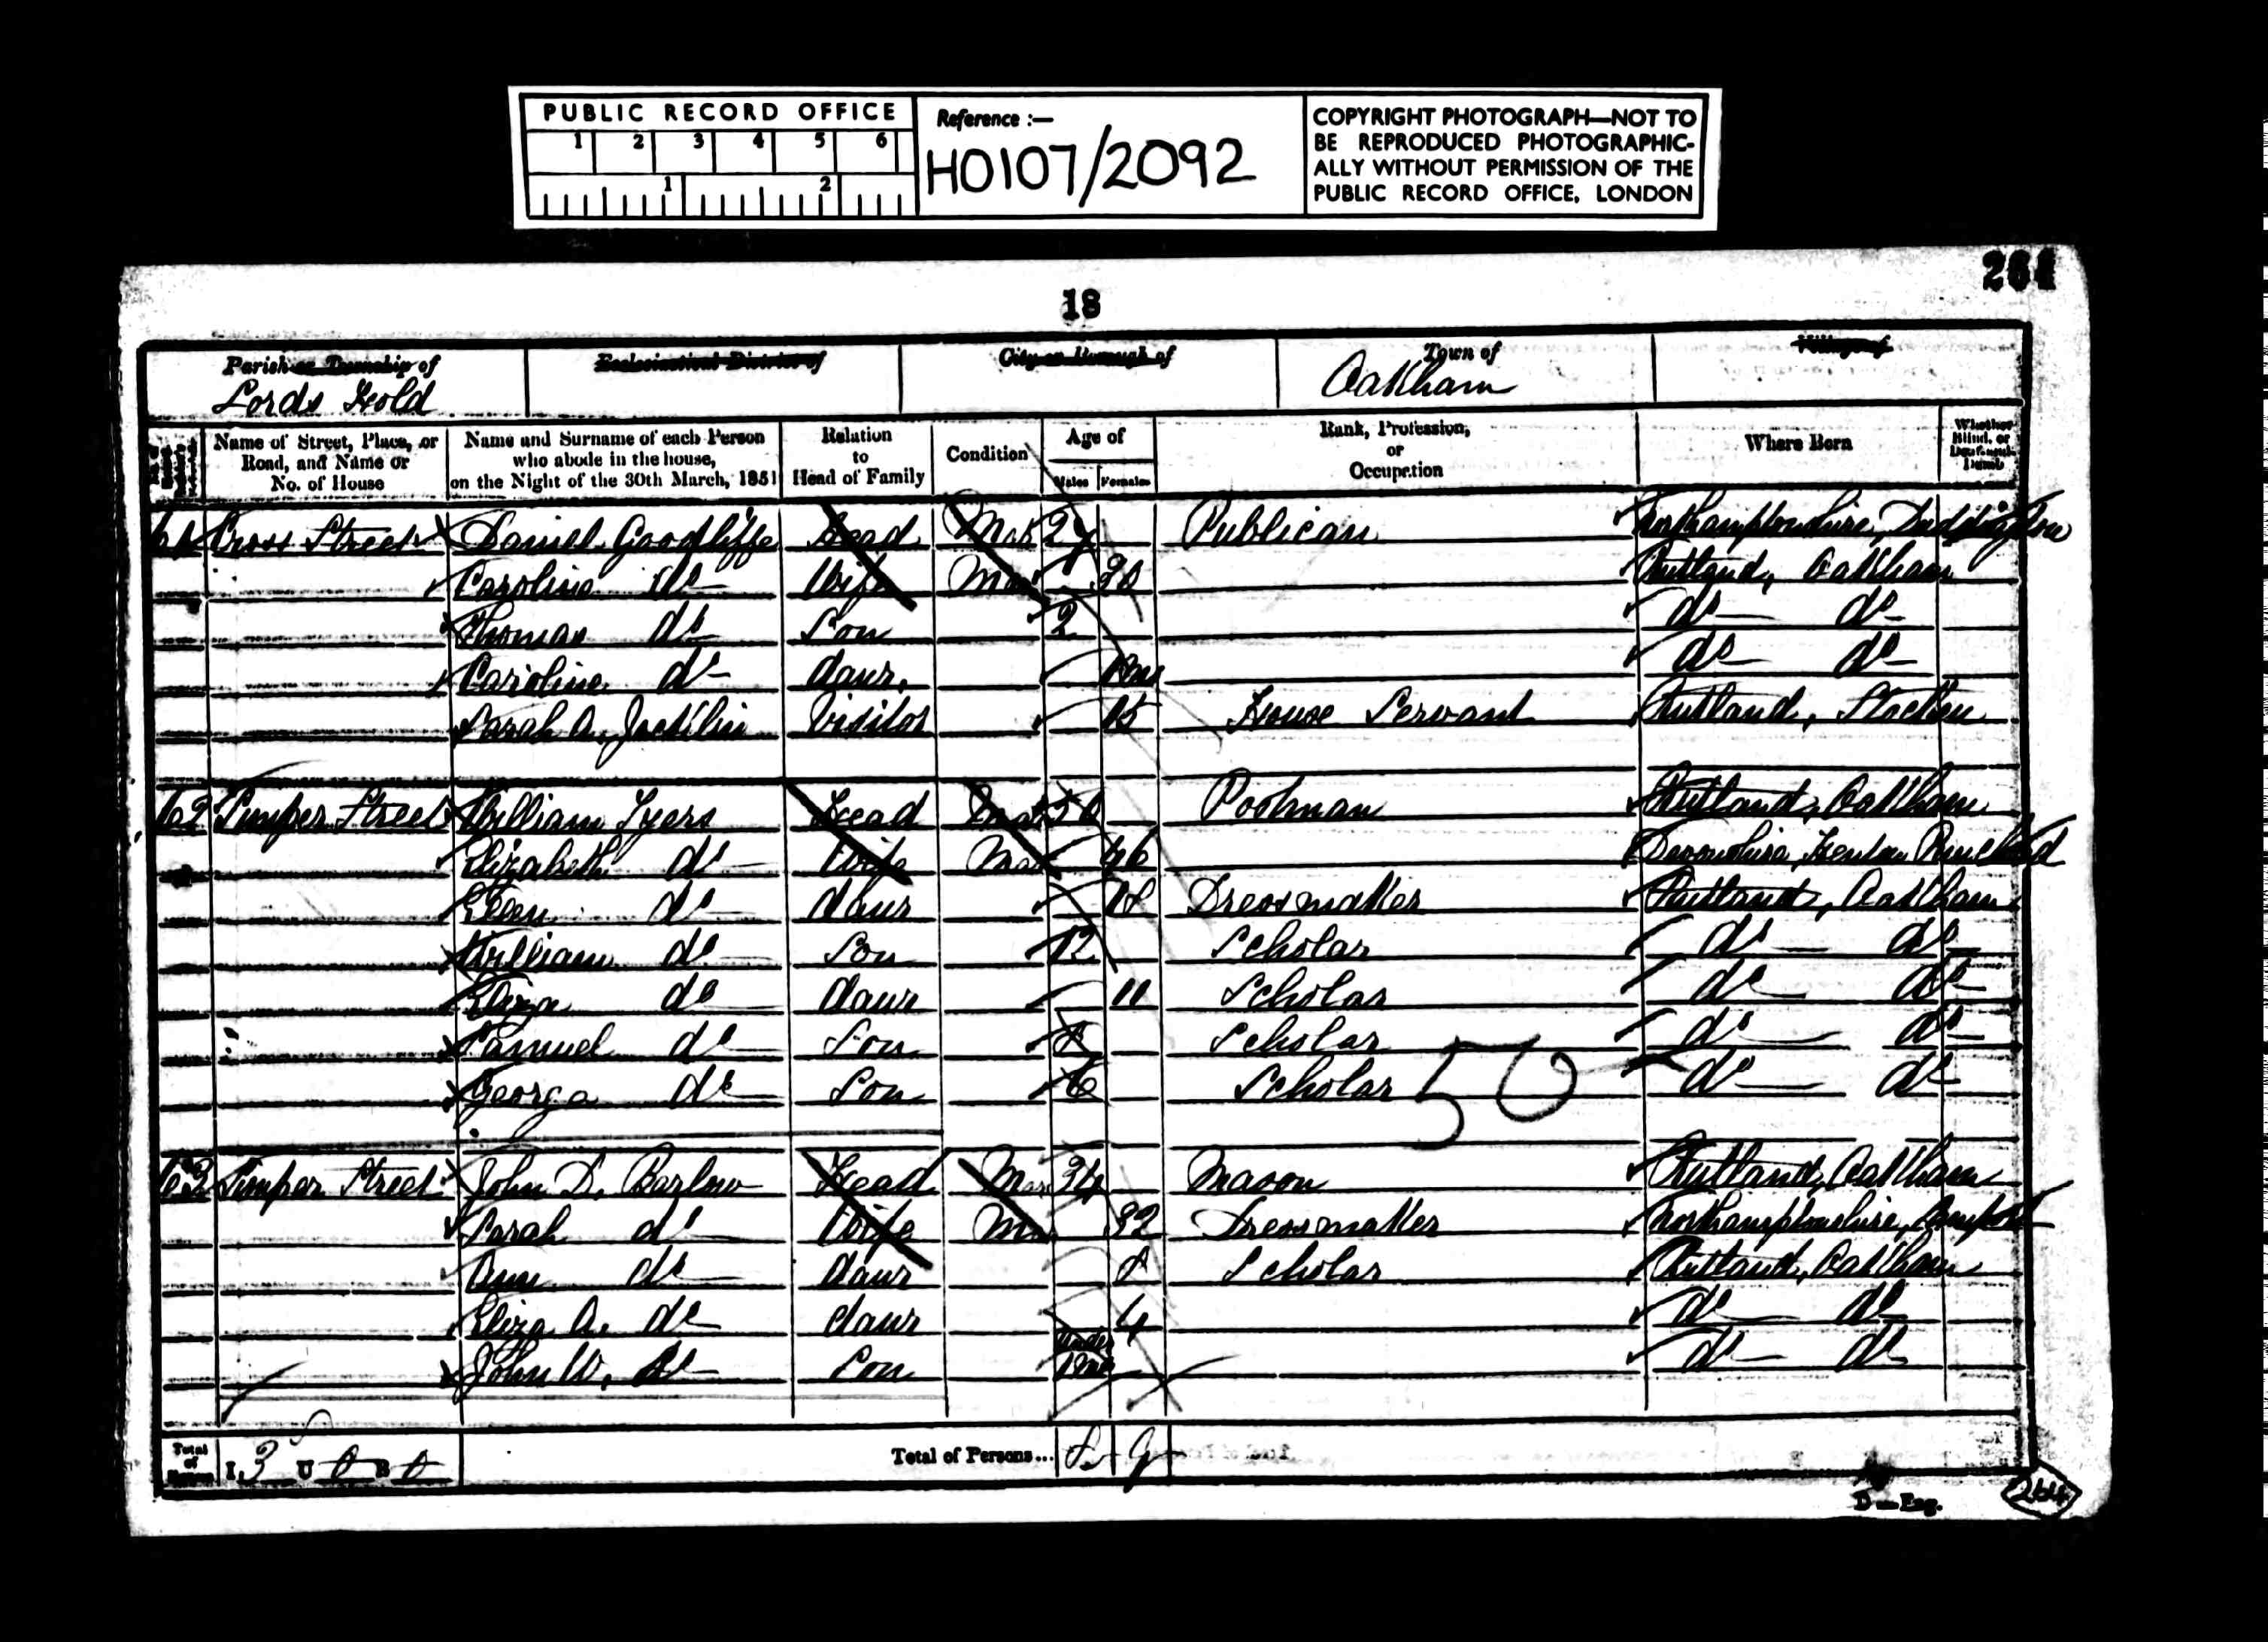 PUBLIC RECORD OFFICE
1 2 3 4 5 6
1 2
Reference :—
HO107/2092
COPYRIGHT PHOTOGRAPH—NOT TO
BE REPRODUCED PHOTOGRAPHIC-
ALLY WITHOUT PERMISSION OF THE
PUBLIC RECORD OFFICE, LONDON
264
18
Parish or Township of
Lords Hold
Ecclesiastical District of
City or Borough of
Town of
Oakham
Village of
Name of Street, Place, or
Road, and Name or
No. of House
Name and Surname of each Person
who abode in the house,
on the Night of the 30th March, 1851
Relation
to
Head of Family
Condition
Age of
Males Females
Rank, Profession,
or
Occupation
Where Born
Whether
Blind, or
Deaf-and-
Dumb
61 Cross Street Daniel Goodliffe Head Mar 29 Publican Northamptonshire, Duddington
Caroline do Wife Mar Rutland, Oakham
Thomas do Son 2 do do
Caroline do daur. do do
Sarah A. Jacklin Visitor 15 House Servant Rutland,
62 Simper Street William Tyers Head Mar 50 Postman Rutland, Oakham
Elizabeth do Wife Mar 46 Devonshire,
Ellen do daur 18 Dressmaker Rutland, Oakham
William do Son 12 Scholar do do
Eliza do daur 11 Scholar do do
Samuel do Son 8 Scholar do do
George do Son 6 Scholar do do
50
63 Simper Street John D. Barlow Head Mar 34 Mason Rutland, Oakham
Sarah do Wife Mar 32 Dressmaker Northamptonshire,
Ann do daur 8 Scholar Rutland, Oakham
Eliza A. do daur 4 do do
John W. do Son Under do do
Total
of
Houses I 3 U 0 B 0
Total of Persons... 8 9
D—Eng.
264